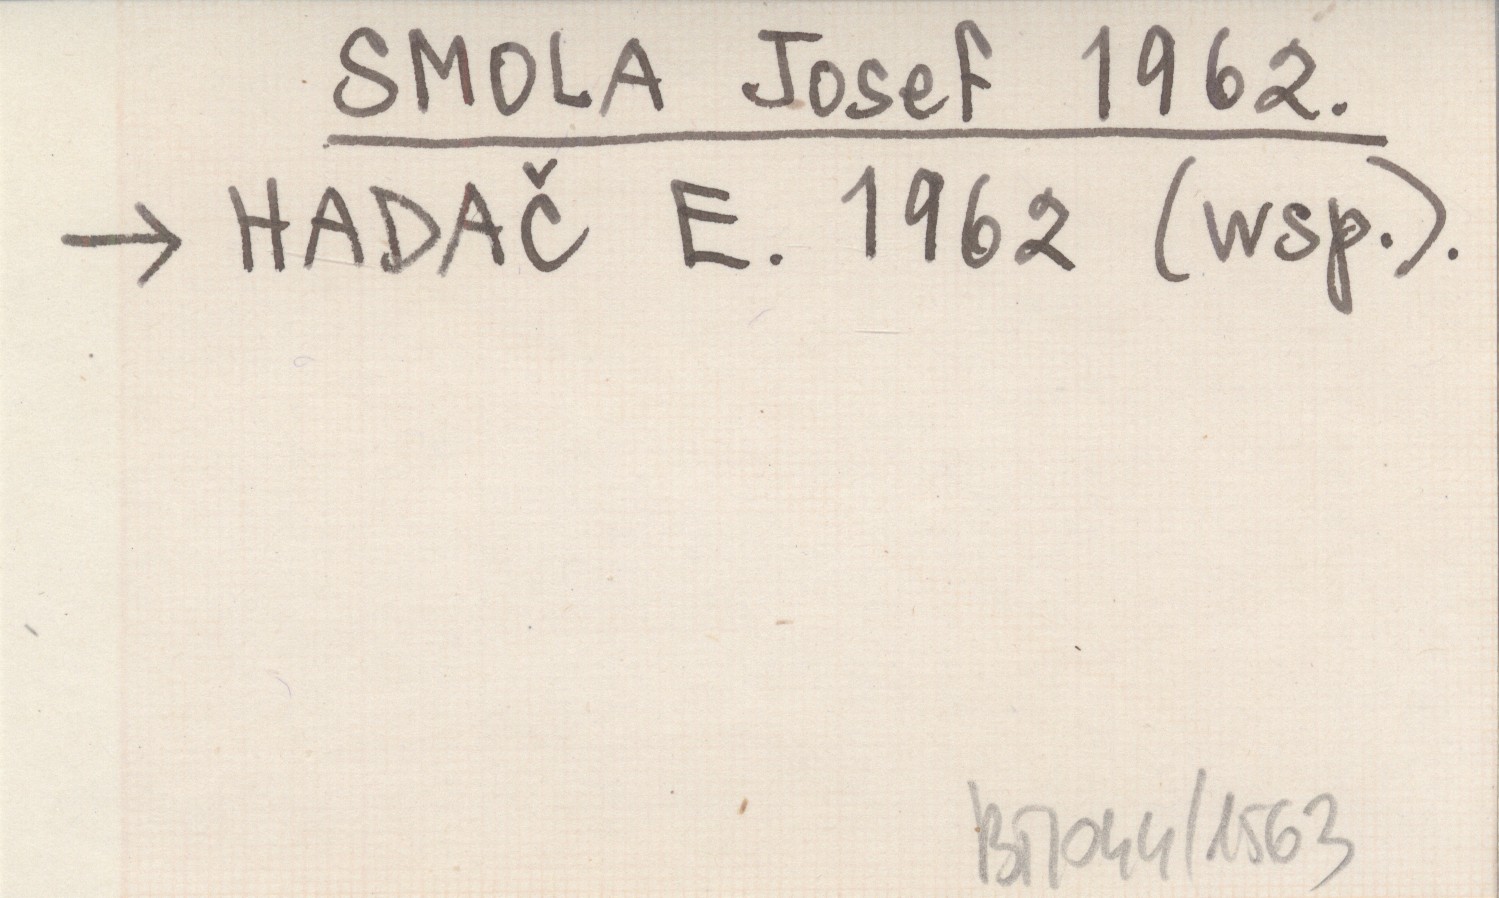 SMOLA Josef 1962.
→ HADAČ E. 1962 (wsp.).
BT/044/1563